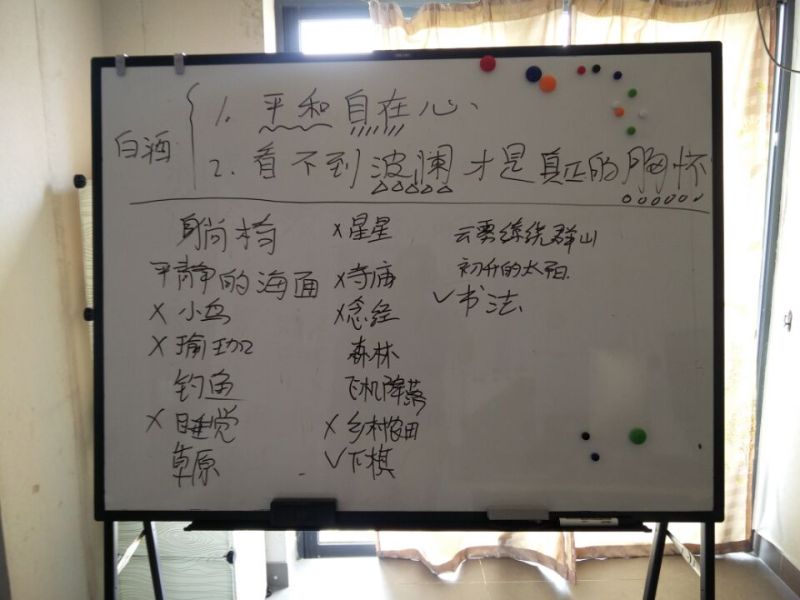 白酒
1. 平和自在心、
2. 看不到波澜才是真正的胸怀
躺椅
平静的海面
× 小鸟
× 瑜珈
钓鱼
× 睡觉
草原
× 星星
× 寺庙
× 念经
森林
飞机降落
× 乡村农田
√ 下棋
云雾缭绕群山
初升的太阳.
√ 书法.